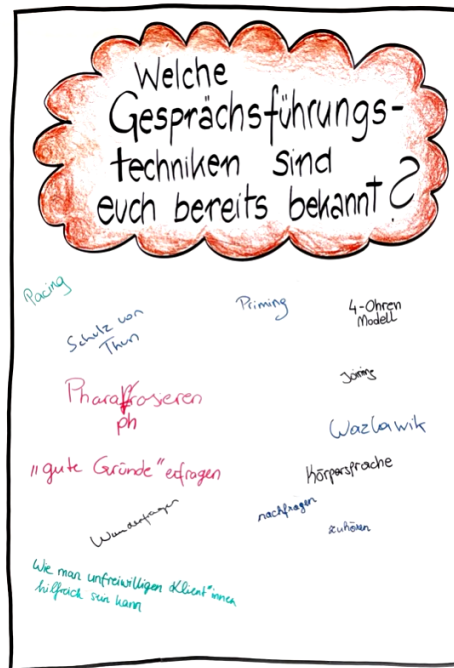 Welche
Gesprächsführungs-
techniken sind
euch bereits bekannt?
Pacing
Priming
4-Ohren
Modell
Schulz von
Thun
Joining
Pharafrasieren
ph
Wazlawik
"gute Gründe" erfragen
Körpersprache
Wunderfragen
nachfragen
zuhören
Wie man unfreiwilligen Klient*innen
hilfreich sein kann